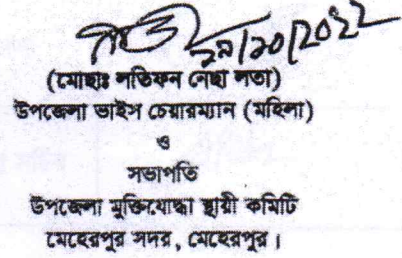 ২৯/১০/2022
(মোছাঃ লতিফন নেছা লতা)
উপজেলা ভাইস চেয়ারম্যান (মহিলা)
ও
সভাপতি
উপজেলা মুক্তিযোদ্ধা স্থায়ী কমিটি
মেহেরপুর সদর, মেহেরপুর।